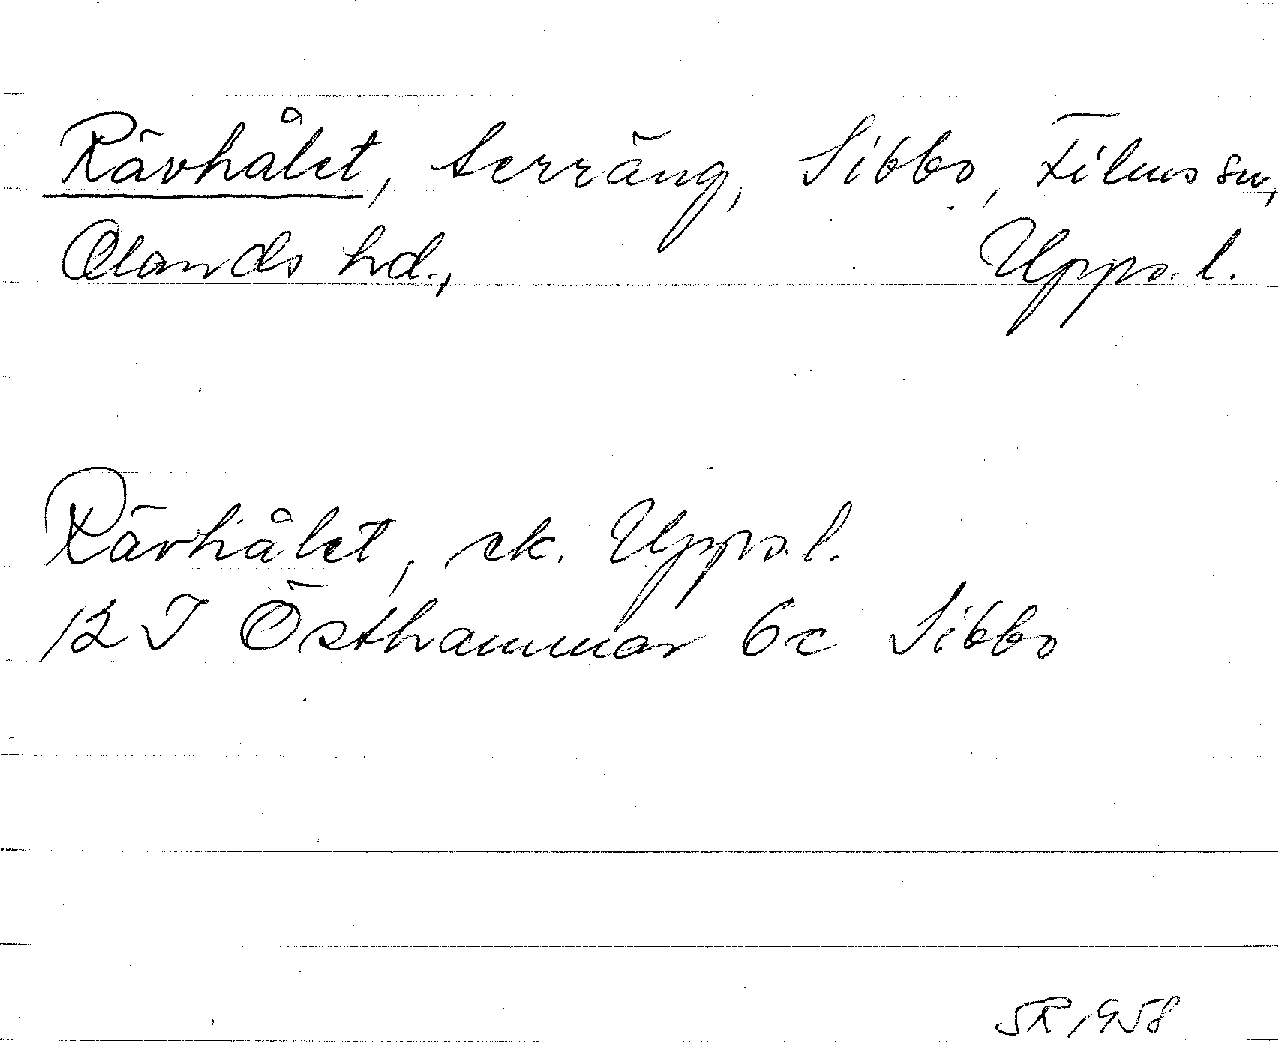 Rävhålet, terräng, Sibbo, Films sn,
Olands hd., Upps. l.
Rävhålet, ek. Upps. l.
12 I Östhammar 6c Sibbo
SR 1958